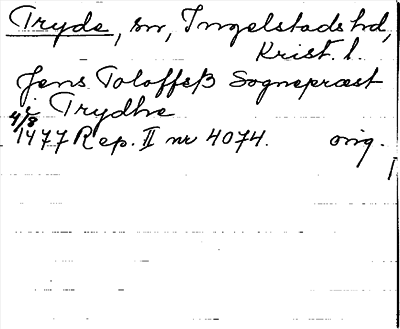 Tryde, sn, Ingelstads hd,
Krist. l.
Jens Toloffsß Sognepræst
i Trydhe
4/8
1477 Rep. II nr 4074. orig.